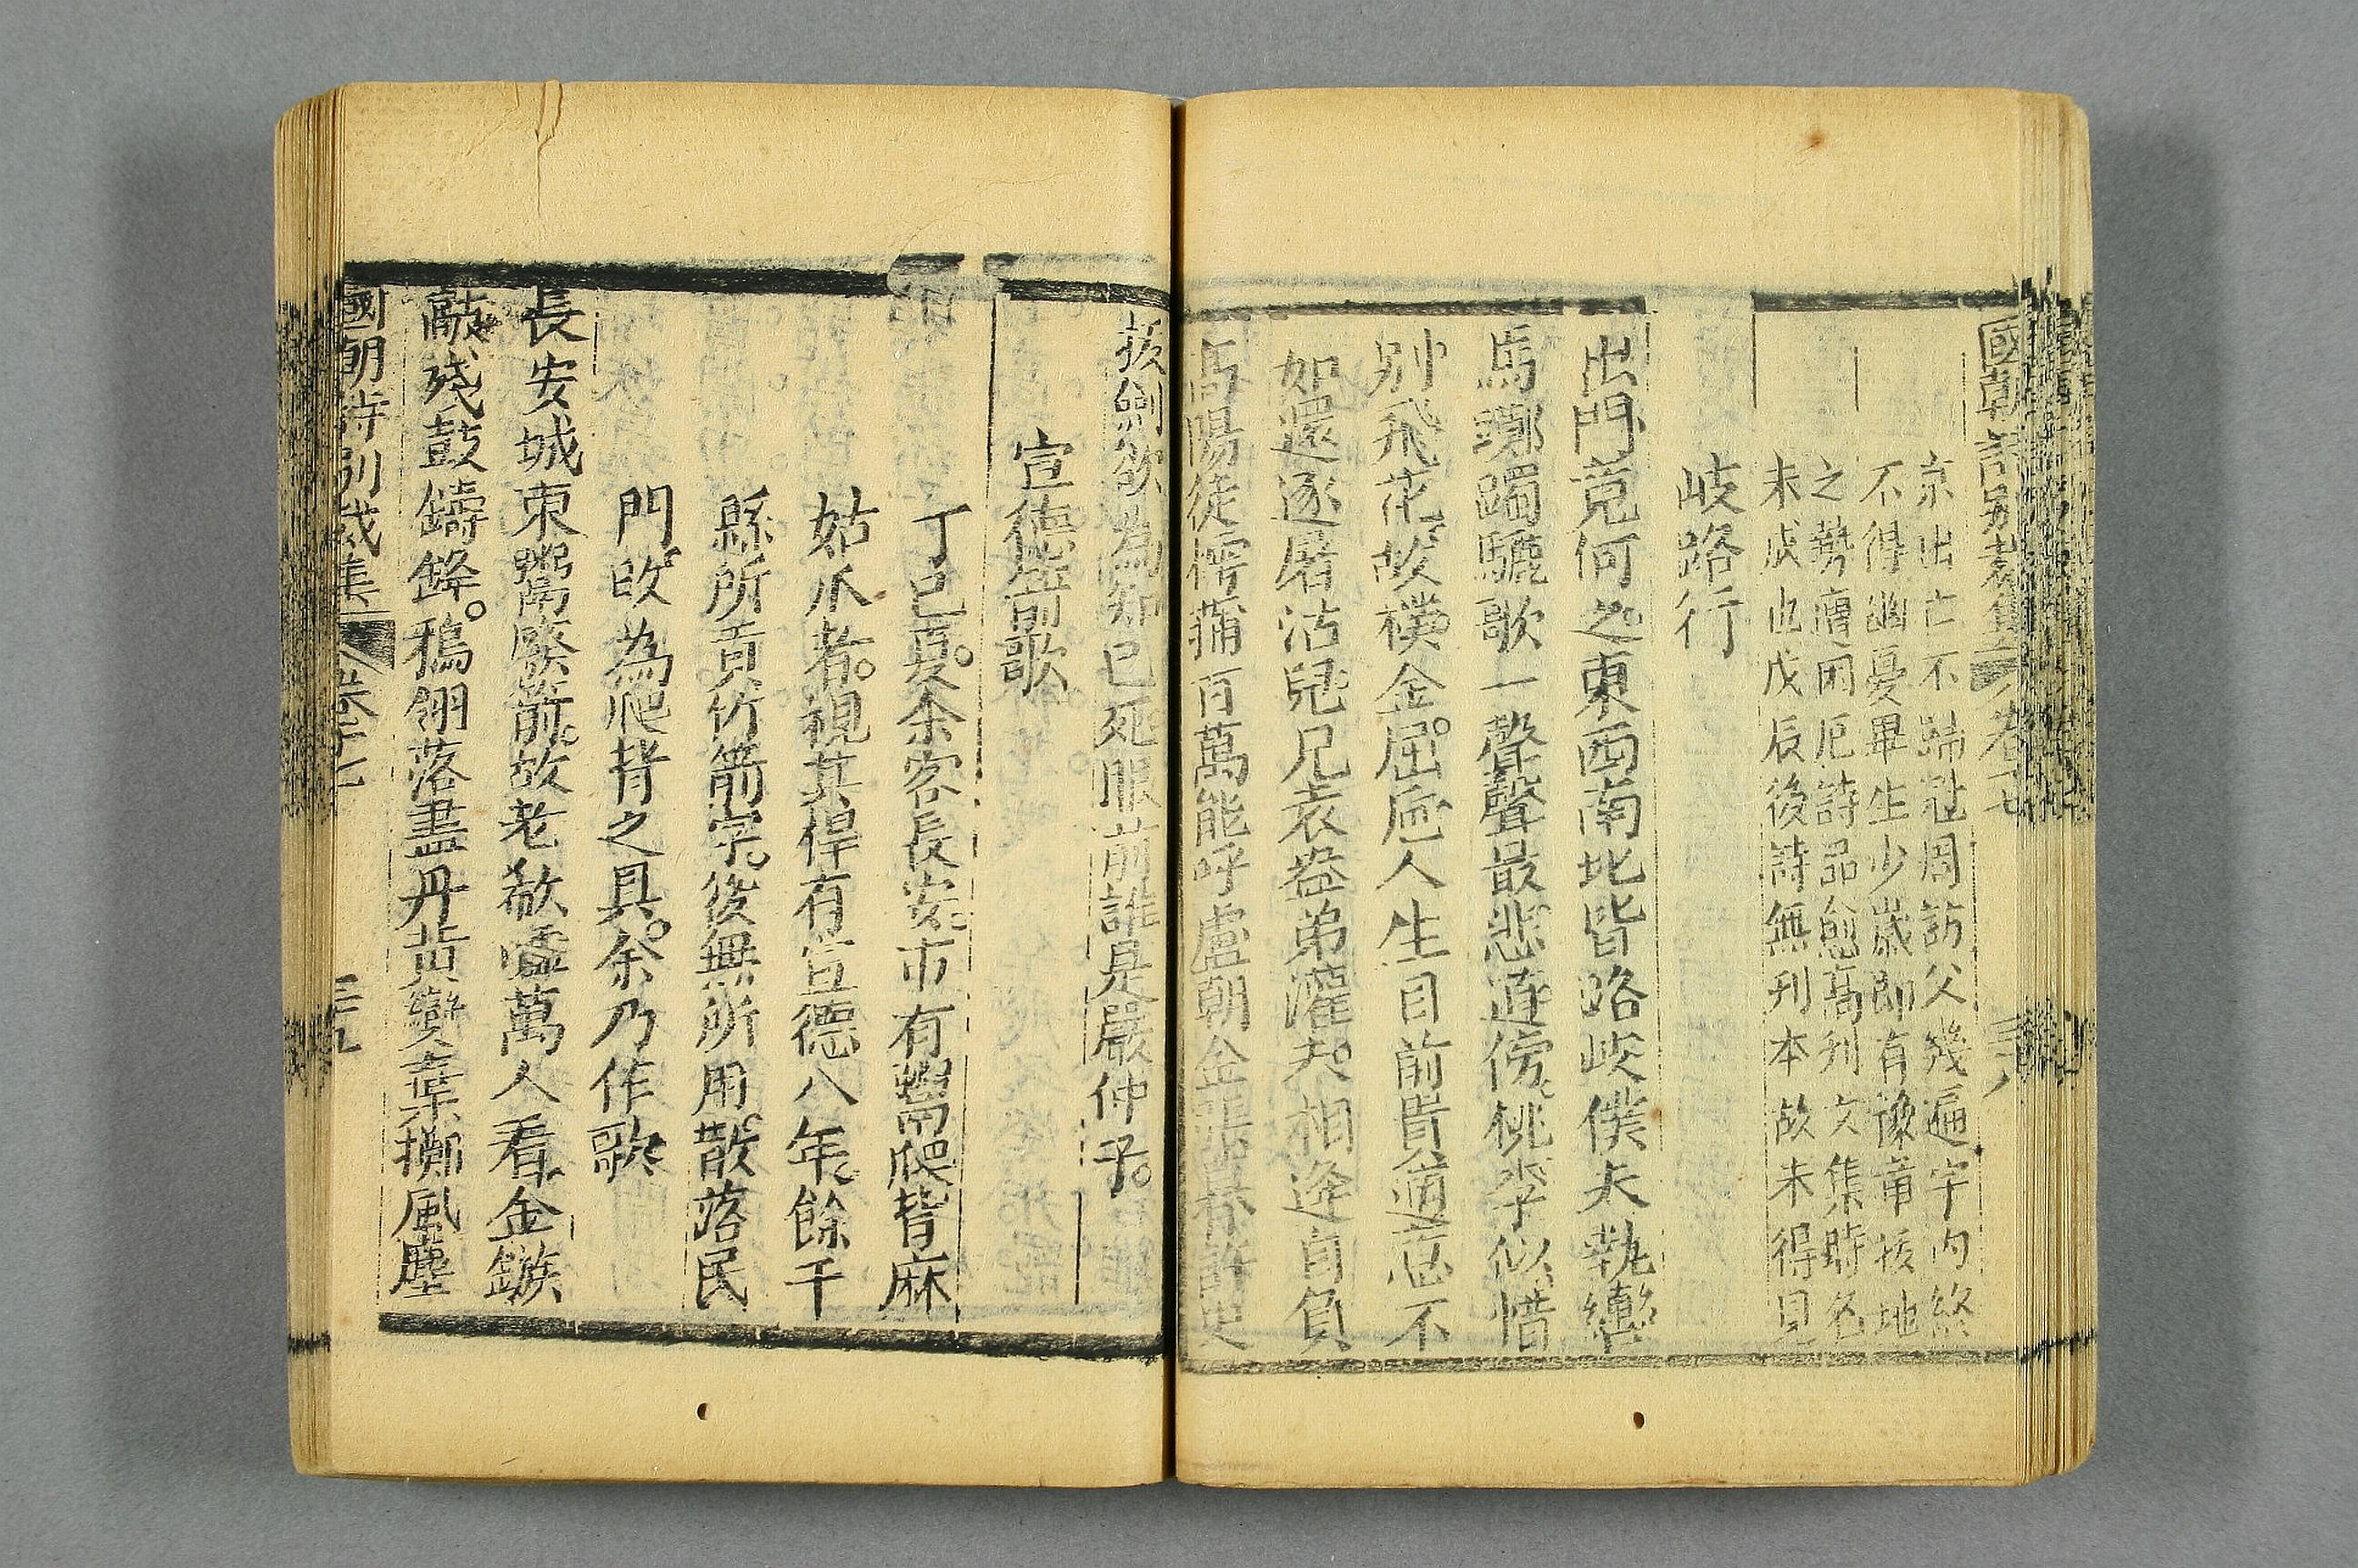 國朝詩別裁集 卷十七 三十八
京出亡不歸冠周訪父幾遍宇内終
不得幽憂畢生少歲即有豫章拔地
之勢遭困厄詩品愈高刋文集時名
未成也戊辰後詩無刋本故未得見
岐路行
出門竟何之東西南北皆路岐僕夫執轡
馬躑躅驪歌一聲聲最悲道傍桃李似惜
別飛花故樸金屈巵人生目前貴適意不
如還逐屠沽兒兄袁盎弟灌夫相逢自負
高陽徒樗蒲百萬能呼盧朝金張暮許史
拔劍欲為知已死眼前誰是嚴仲子
宣德箭歌
丁已夏余客長安市有鬻爬背麻
姑爪者視其桿有宣德八年餘干
縣所貢竹箭字後無所用散落民
門改為爬背之具余乃作歌
長安城東鬻廢箭故老欷噓萬人看金鏃
敲殘鼓鑄鋒鵶翎落盡丹黃變棄擲風塵
國朝詩別裁集 卷十七 三十九